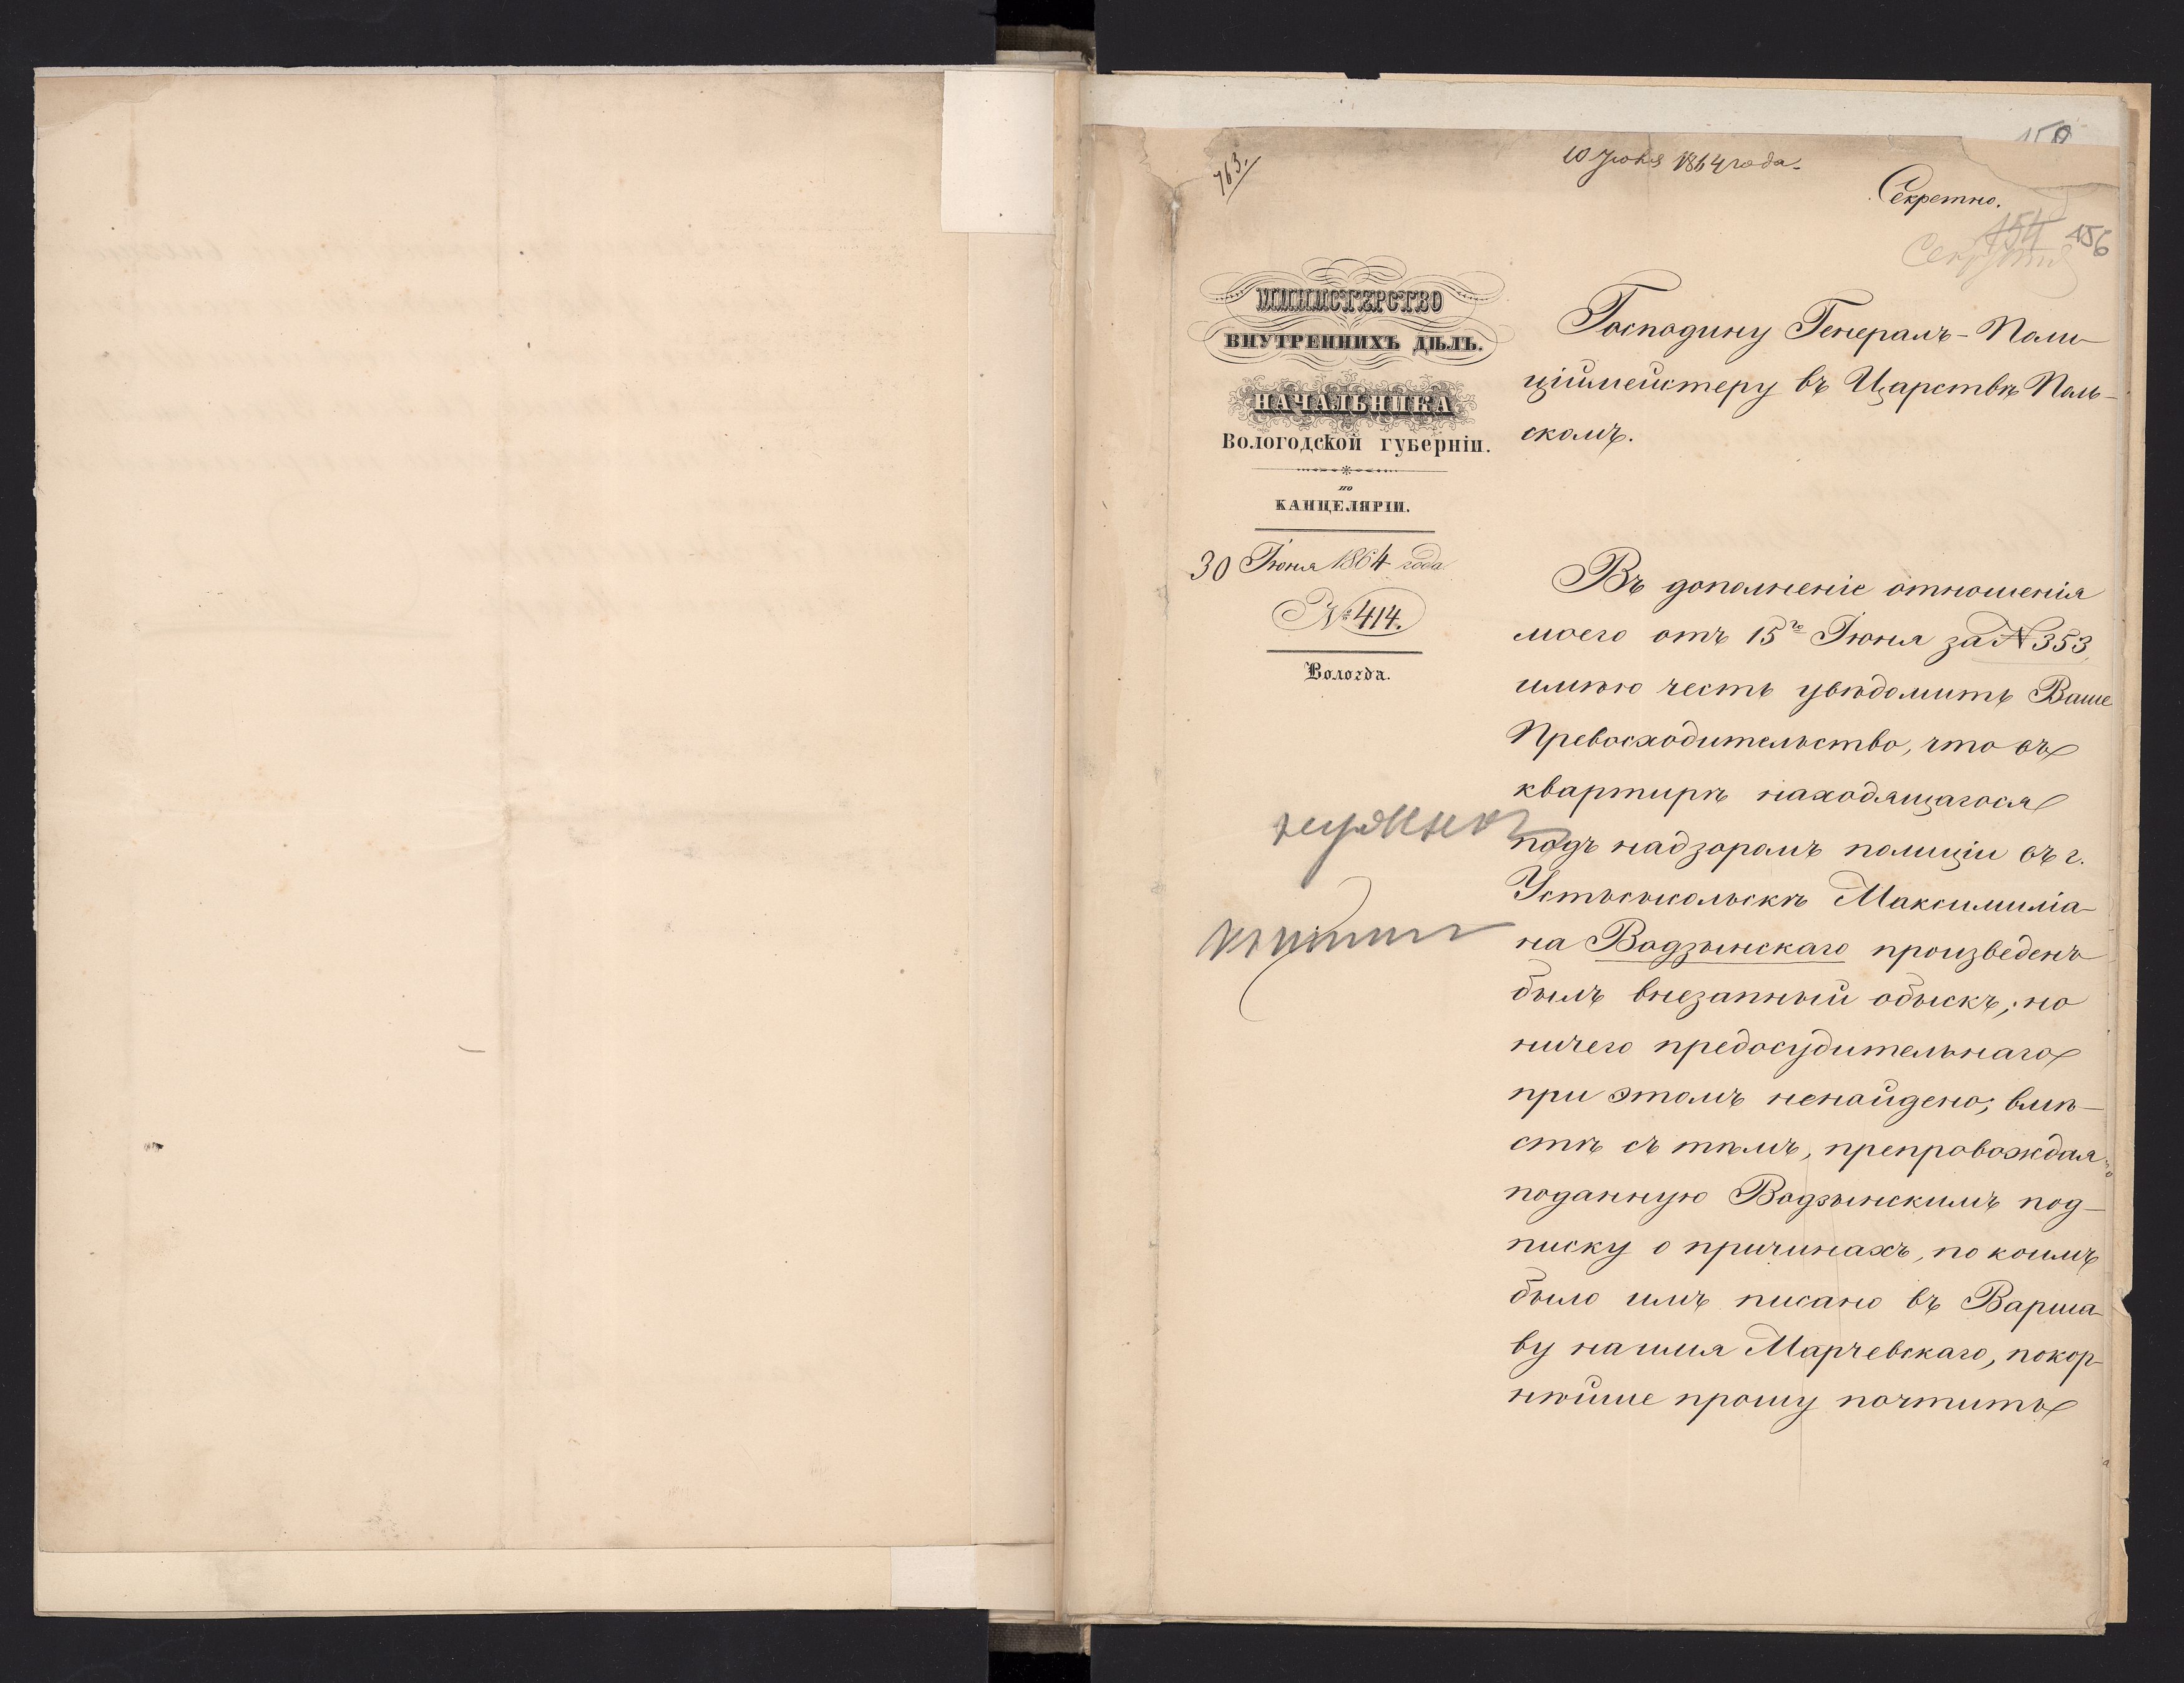 763.
10 Июля 1864 года.
Секретно.
154 156
МИНИСТЕРСТВО
ВНУТРЕННИХЪ ДѢЛЪ.
НАЧАЛЬНИКА
Вологодской губерніи.
по
КАНЦЕЛЯРІИ.
30 Іюня 1864 года
№ 414.
Вологда.
Господину Генералъ-Поли-
ціймейстеру въ Царствѣ Поль-
скомъ.
Въ дополненіе отношенія
моего отъ 15го Іюня за № 353,
имѣю честь увѣдомить Ваше
Превосходительство, что въ
квартирѣ находящагося
подъ надзоромъ полиціи въ г.
Устьсысольскѣ Максимиліа-
на Водзынскаго произведенъ
былъ внезапный обыскъ; но
ничего предосудительнаго
при этомъ ненайдено; вмѣ-
стѣ съ тѣмъ, препровождая
поданную Водзынскимъ под-
писку о причинахъ, по коимъ
было имъ писано въ Варша-
ву на имя Марчевскаго, покор-
нѣйше прошу почтить